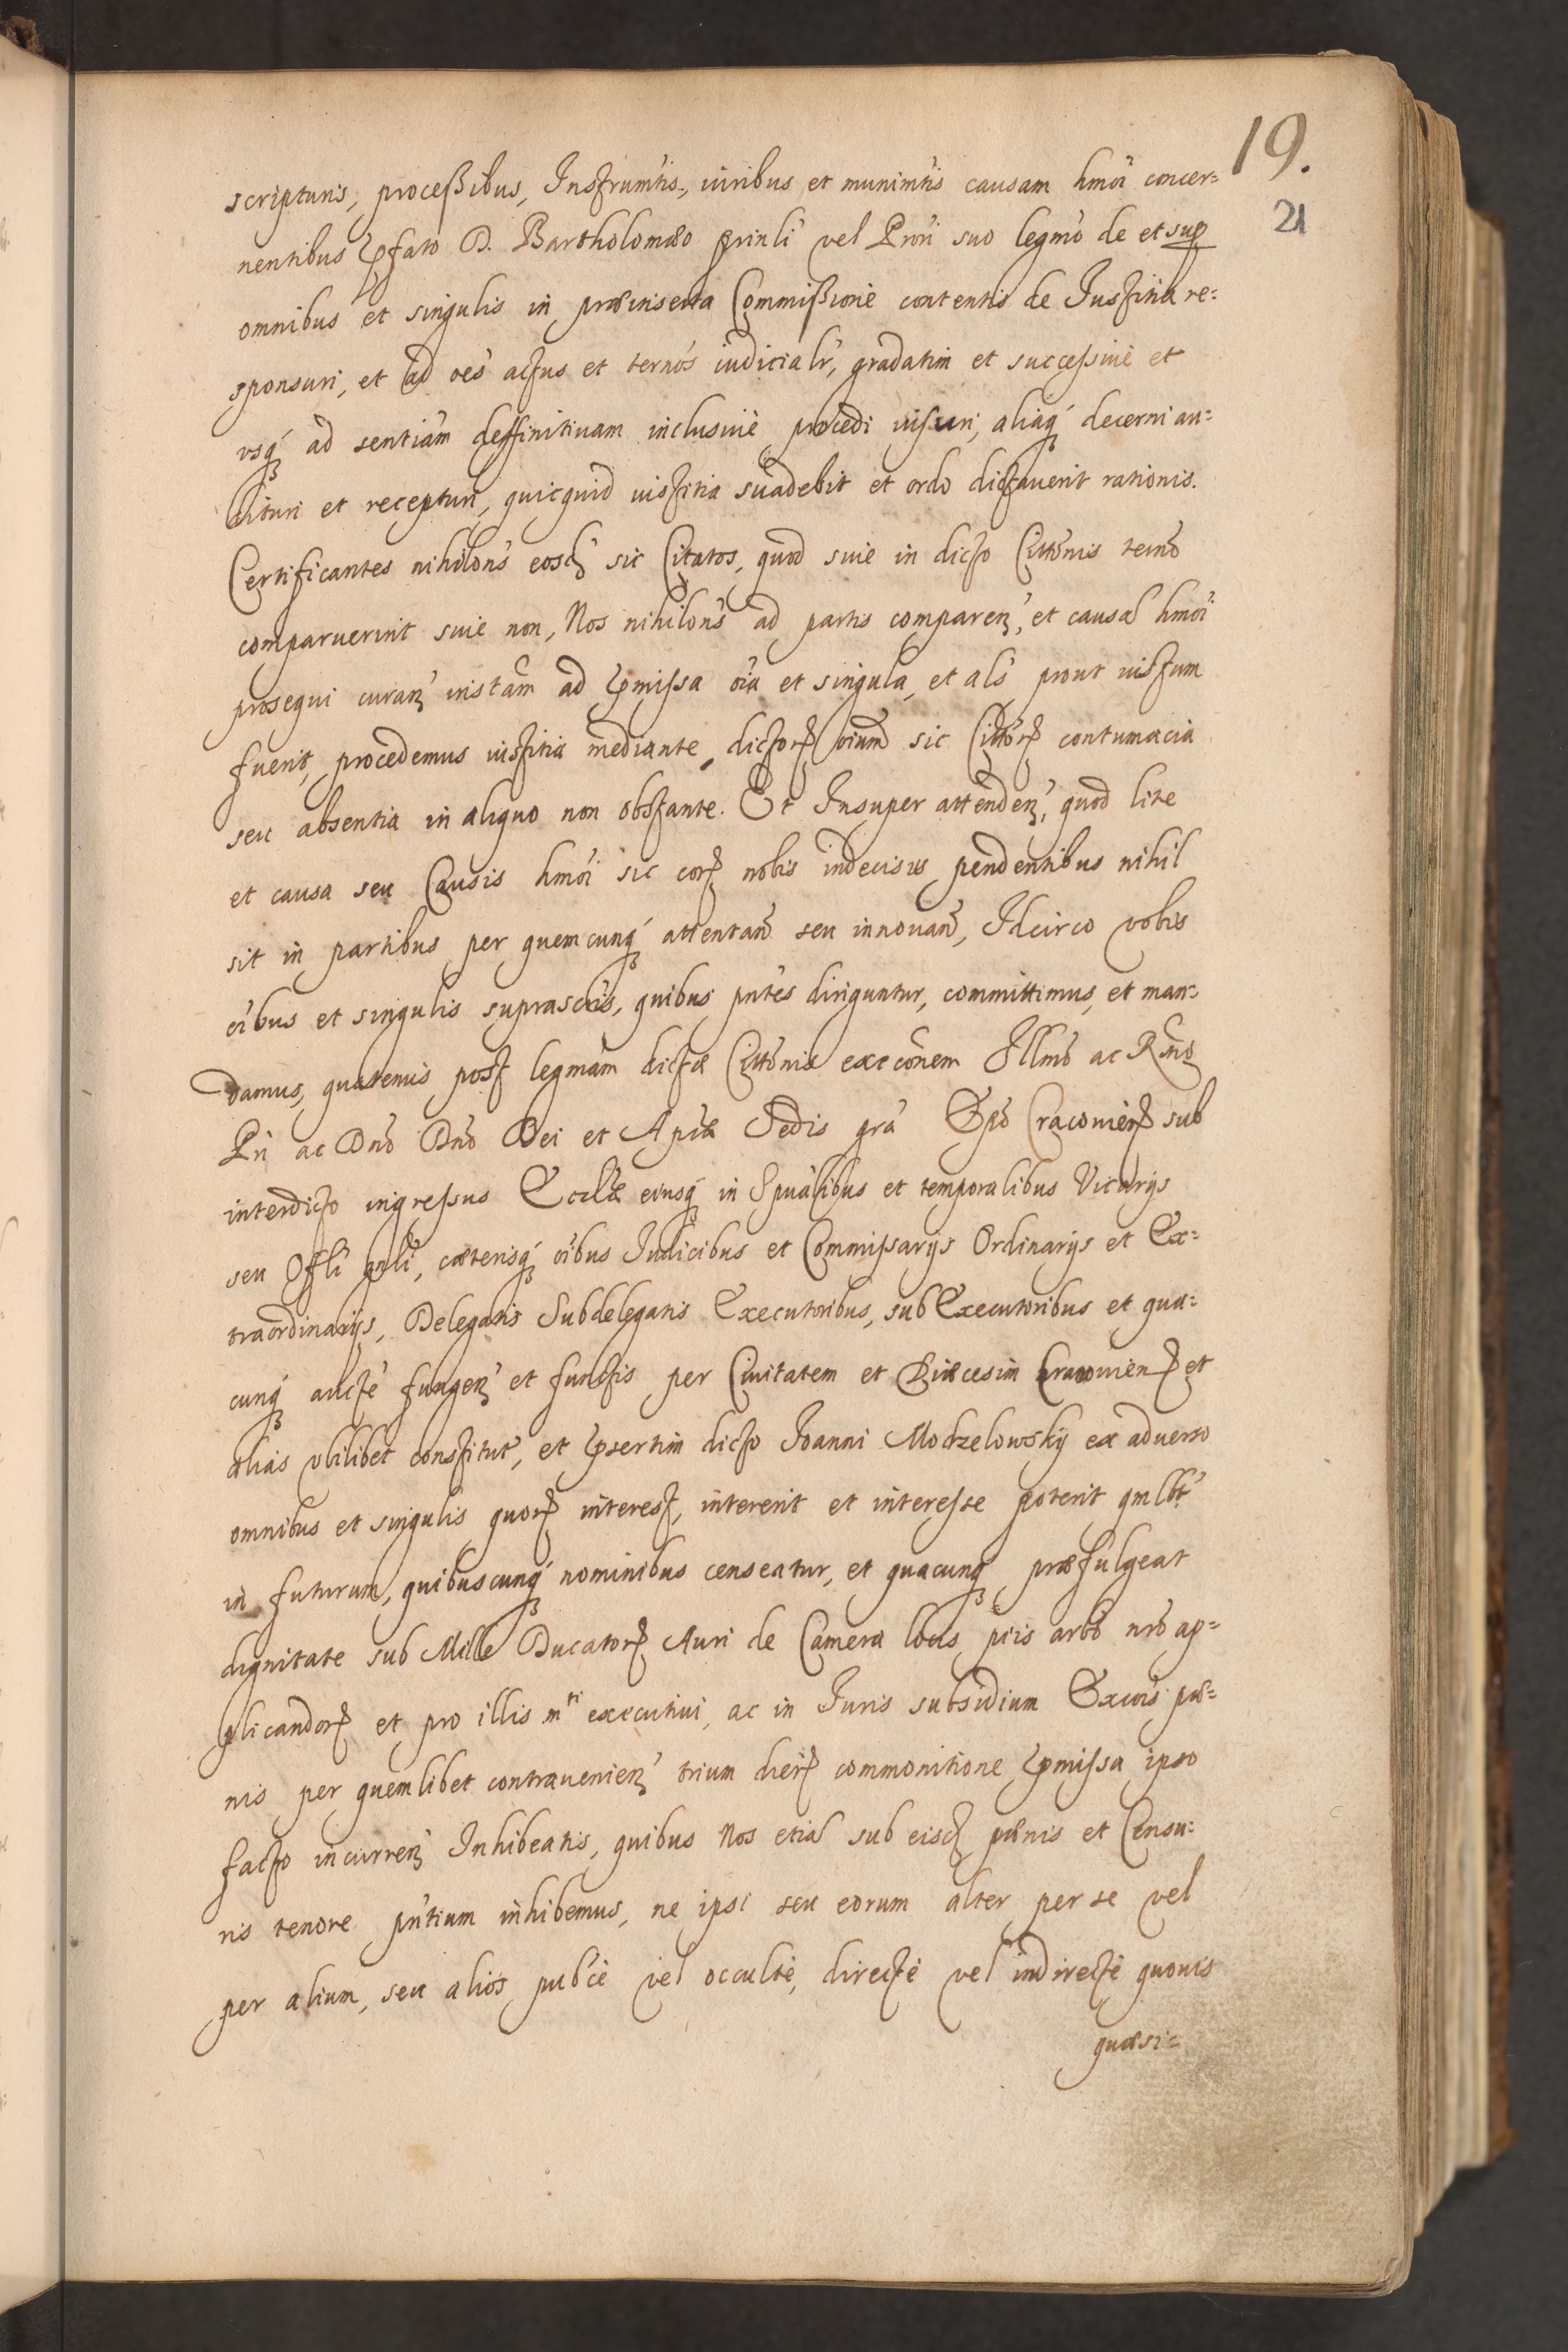 19.
21
scripturis, processibus, Instrumtis, iuribus et munimtis causam hmoi concer=
nentibus pfato D. Bartholomæo prinli vel Prori suo legmo de et sup
omnibus et singulis in præinserta Commissione contentis de Iustitia re=
sponsuri, et ad oes actus et ternos iudicialr, gradatim et successiuè et
vsq́ ad sentiam deffinitiuam inclusiuè procedi visuri, aliaq́ decerni au=
dituri et recepturi, quicquid iustitia suadebit et ordo dictauerit rationis.
Certificantes nihilons eosd sic Citatos, quod siuè in dicto Cittonis termo
comparuerint siuè non, Nos nihilons ad partis comparen, et causã hmoi
prosequi curan instam ad pmissa oia et singula, et als prout iustum
fuerit, procedemus iustitia mediante, dictor oium sic Cittor contumacia
seu absentia in aliquo non obstante. Et Insuper attenden, quod lite
et causa seu Causis hmoi sic cor nobis indecisis pendentibus nihil
sit in partibus per quemcunq́ attentan seu innouan, Idcirco vobis
oibus et singulis suprascris, quibus pntes diriguntur, committimus, et man=
damus, quatenus post legmam dictæ Cittonis execonem Illmo ac Rmo
Pri ac Dno Dno Dei et Aplicæ Sedis gra Epo Cracouien sub
interdicto ingressus Ecclæ eiusq́ in Spualibus et temporalibus Vicarijs
seu Offli gnli, cæterisq́ oibus Iudicibus et Commissarijs Ordinarijs et Ex=
traordinarijs, Delegatis Subdelegatis Executoribus, subExecutoribus et qua=
cunq́ aucte fungen et functis per Ciuitatem et Diæcesim Cracouien et
alias vbilibet constitut, et psertim dicto Ioanni Modzelowsky ex aduerso
omnibus et singulis quor interest, intererit et interesse poterit qmlbt
in futurum, quibuscunq́ nominibus censeatur, et quacunq́ præfulgeat
dignitate sub Mille Ducator Auri de Camera locis pijs arbo nro ap=
plicandor et pro illis mti executiui, ac in Iuris subsidium Excois pæ=
nis per quemlibet contrauenien trium dier commonitione pmissa ipso
facto incurren Inhibeatis, quibus Nos etiã sub eisd pænis et Censu=
ris tenore pntium inhibemus, ne ipsi seu eorum alter per se vel
per alium, seu alios pubcè vel occultè, directè vel indirectè quouis
quæsi=